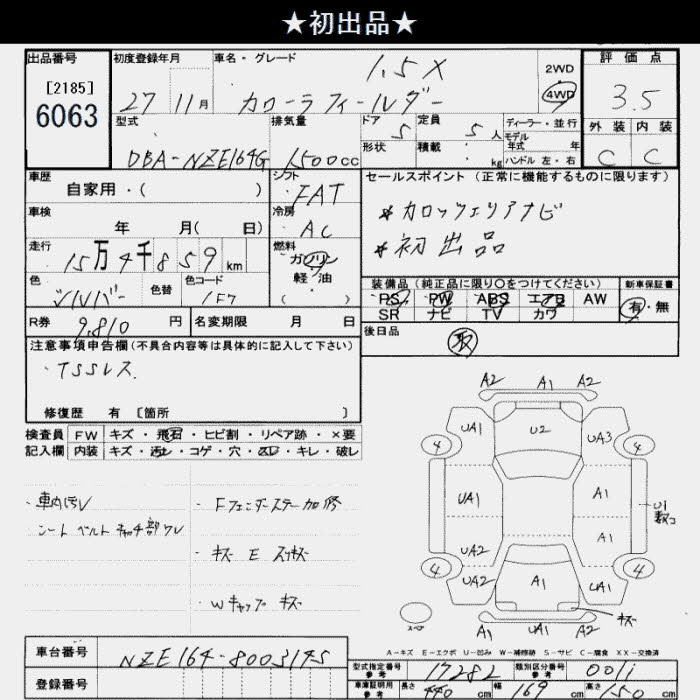 ★初出品★
出品番号
[2185]
6063
初度登録年月
27 11月
車名・グレード
1.5X
カローラフィールダー
2WD
4WD
評価点
3.5
外装 内装
C C
型式
DBA-NZE164G
排気量
1500cc
ドア 5
形状
定員 5人
積載 kg
ディーラー・並行
モデル年式 年式
ハンドル 左・右
車歴
自家用・( )
シフト
FAT
車検
年 月( 日)
冷房
AC
走行
15万4千859km
燃料
ガソリン
軽・油
( )
色
シルバー
色替
色コード
1F7
R券 9,810 円
名変期限 月 日
セールスポイント (正常に機能するものに限ります)
*カロッツェリアナビ
*初出品
装備品(純正品に限り○をつけてください)
PS PW ABS エアB AW
SR ナビ TV カワ
新車保証書
有・無
後日品
取
注意事項申告欄(不具合内容等は具体的に記入して下さい)
・TSSレス
修復歴 有 〔箇所 〕
検査員 FW キズ・飛石・ヒビ割・リペア跡・×要
記入欄 内装 キズ・汚レ・コゲ・穴・スレ・キレ・破レ
・車内汚レ
シートベルトキャッチ部ワレ
・Fフェンダーステー加修
・キズ E スリキズ
・Wキャップ キズ
A2 A1 A2
4 UA1 U2 UA3 4
UA1 A1
U1
UA2 A1
4 UA2 A1 UA1 4
キズ
スペア
A1 UA1 A2
A-キズ E-エクボ U-凹み W-補修跡 S-サビ C-腐食 XX-交換済
車台番号
NZE164-8003145
登録番号
型式指定番号 参考
17282
類別区分番号 参考
車庫証明用 参考
長さ 440 cm
幅 169 cm
高さ 150 cm